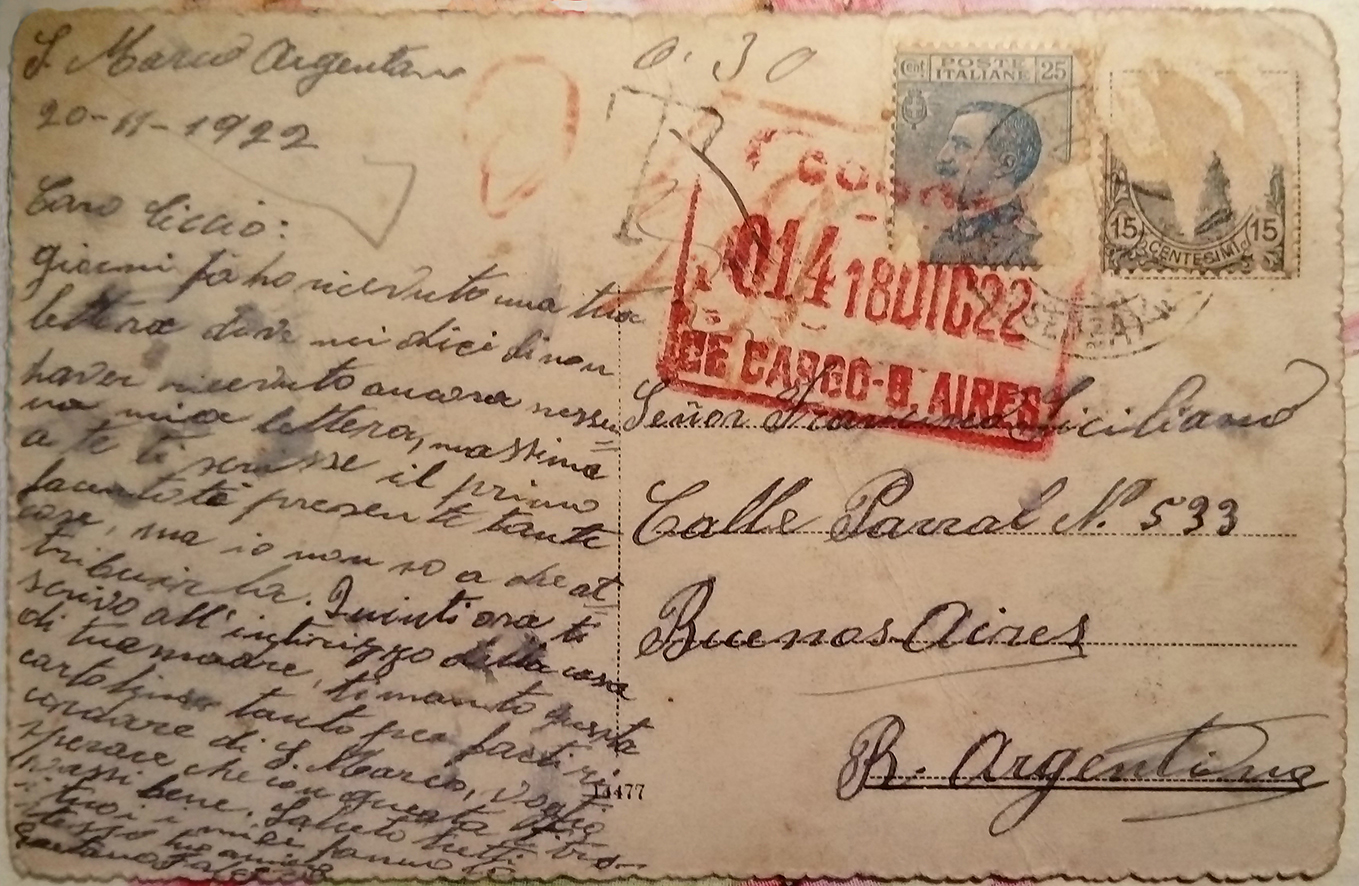 S. Marco Argentano
20-11-1922
Caro Ciccio:
giorni fa ho ricevuto una tua
lettera dove mi dici di non
haver ricevuto ancora nessu=
na mia lettera, massima
a te ti scrisse il primo
facendoti presente tante
cose, ma io non so a che at=
tribuirla. Quinti ora ti
scrivo all'intirizzo della casa
di tua madre, ti manto questa
cartolina tanto per farti ri
cordare di S. Marco, voglio
sperare che con questa ti tro-
vassi bene. Saluto tutti
i tuoi i miei fanno lo
stesso tuo amico
Gaetano
0.30
T
Cent POSTE ITALIANE 25
15 CENTESIMI 15
014 18DIC22
CE CARGO-B. AIRES
Señor Siciliano
Calle Parral N.º 533
Buenos Aires
R. Argentina
13477